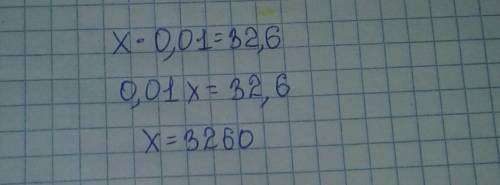 x · 0,01 = 32,6
0,01x = 32,6
x = 3260